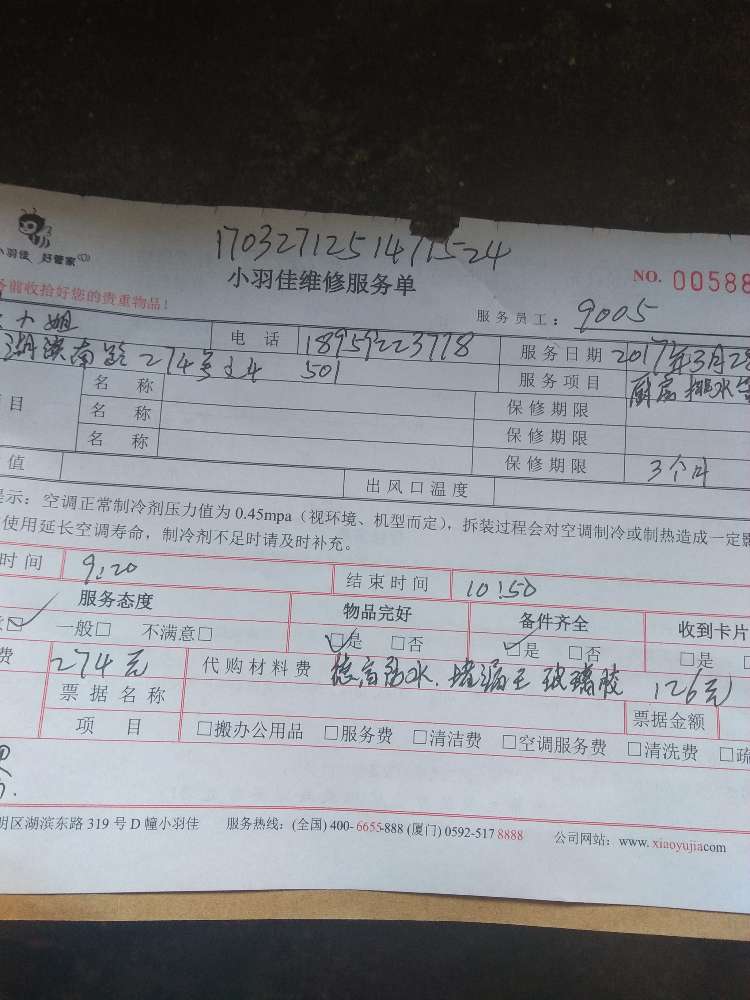 1703271251471524
小羽佳 好管家
小羽佳维修服务单
NO. 00588
务前收拾好您的贵重物品！
服务员工： 9005
小姐 电 话 18959223778 服务日期 2017年3月28
湖滨南路274号之4 501 服务项目 厨房排水
目 名 称 保修期限
名 称 保修期限
名 称 保修期限 3个月
值 出风口温度
示：空调正常制冷剂压力值为 0.45mpa（视环境、机型而定），拆装过程会对空调制冷或制热造成一定
使用延长空调寿命，制冷剂不足时请及时补充。
时间 9:20 结束时间 10:50
服务态度 物品完好 备件齐全 收到卡片
一般□ 不满意□ □是 □否 □是 □否 □是
费 274元 代购材料费 德高防水.堵漏王 玻璃胶 126元
票据名称 票据金额
项 目 □搬办公用品 □服务费 □清洁费 □空调服务费 □清洗费 □疏
明区湖滨东路 319 号 D 幢小羽佳 服务热线：(全国) 400-6655-888 (厦门) 0592-517 8888 公司网站：www. xiaoyujiacom